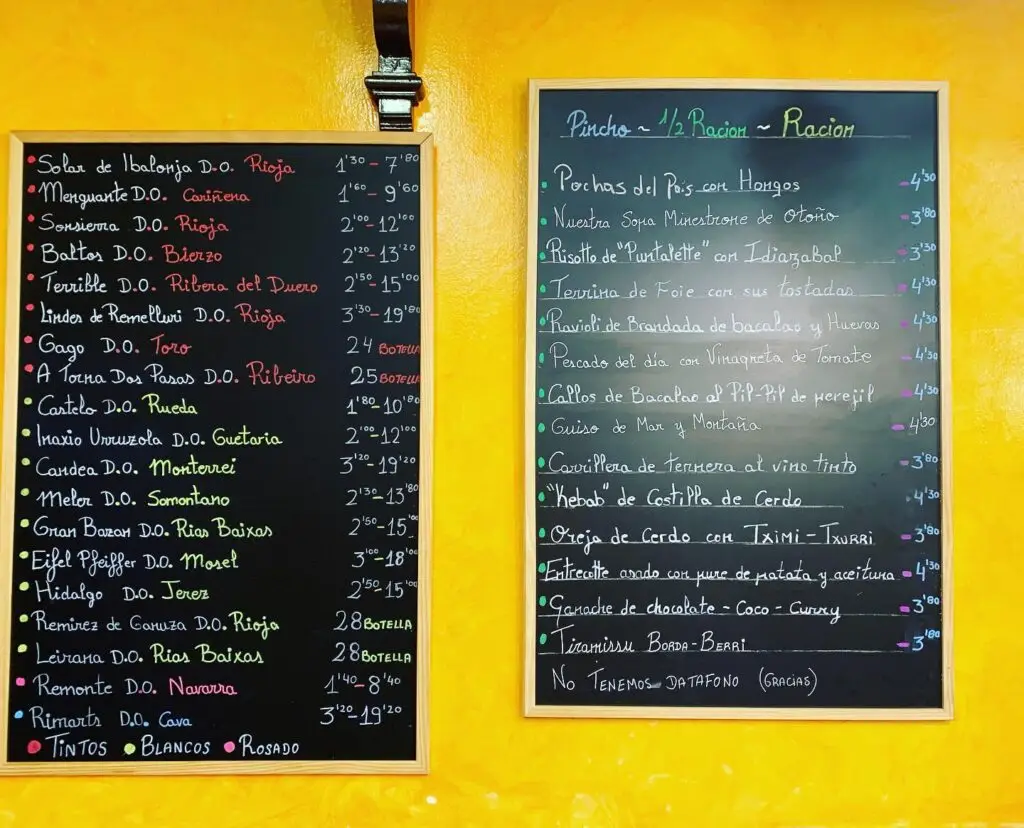 Solar de Ibalonja D.O. Rioja 1'30 - 7'80
Menguante D.O. Cariñena 1'60 - 9'60
Sonsierra D.O. Rioja 2'00 - 12'00
Baltos D.O. Bierzo 2'20 - 13'20
Terrible D.O. Ribera del Duero 2'50 - 15'00
Lindes de Remelluri D.O. Rioja 3'30 - 19'80
Gago D.O. Toro 24 BOTELLA
A Torna Dos Pasas D.O. Ribeiro 25 BOTELLA
Castelo D.O. Rueda 1'80 - 10'80
Inaxio Urruzola D.O. Guetaria 2'00 - 12'00
Candea D.O. Monterrei 3'20 - 19'20
Meler D.O. Somontano 2'30 - 13'80
Gran Bazan D.O. Rias Baixas 2'50 - 15'00
Eifel Pfeiffer D.O. Mosel 3'00 - 18'00
Hidalgo D.O. Jerez 2'50 - 15'00
Remirez de Ganuza D.O. Rioja 28 BOTELLA
Leirana D.O. Rias Baixas 28 BOTELLA
Remonte D.O. Navarra 1'40 - 8'40
Rimarts D.O. Cava 3'20 - 19'20
TINTOS BLANCOS ROSADO
Pincho ~ 1/2 Racion ~ Racion
Pochas del Pais con Hongos - 4'30
Nuestra Sopa Minestrone de Otoño - 3'80
Risotto de "Puntalette" con Idiazabal - 3'30
Terrina de Foie con sus tostadas - 4'30
Ravioli de Brandada de bacalao y Huevas - 4'30
Pescado del día con Vinagreta de Tomate - 4'30
Callos de Bacalao al Pil-Pil de perejil - 4'30
Guiso de Mar y Montaña - 4'30
Carrillera de ternera al vino tinto - 3'80
"Kebab" de Costilla de Cerdo - 4'30
Oreja de Cerdo con TXIMI-TXURRI - 3'80
Entrecotte asado con pure de patata y aceituna - 4'30
Ganache de chocolate - Coco - Curry - 3'80
Tiramissu BORDA-BERRI - 3'80
NO TENEMOS DATAFONO (GRACIAS)